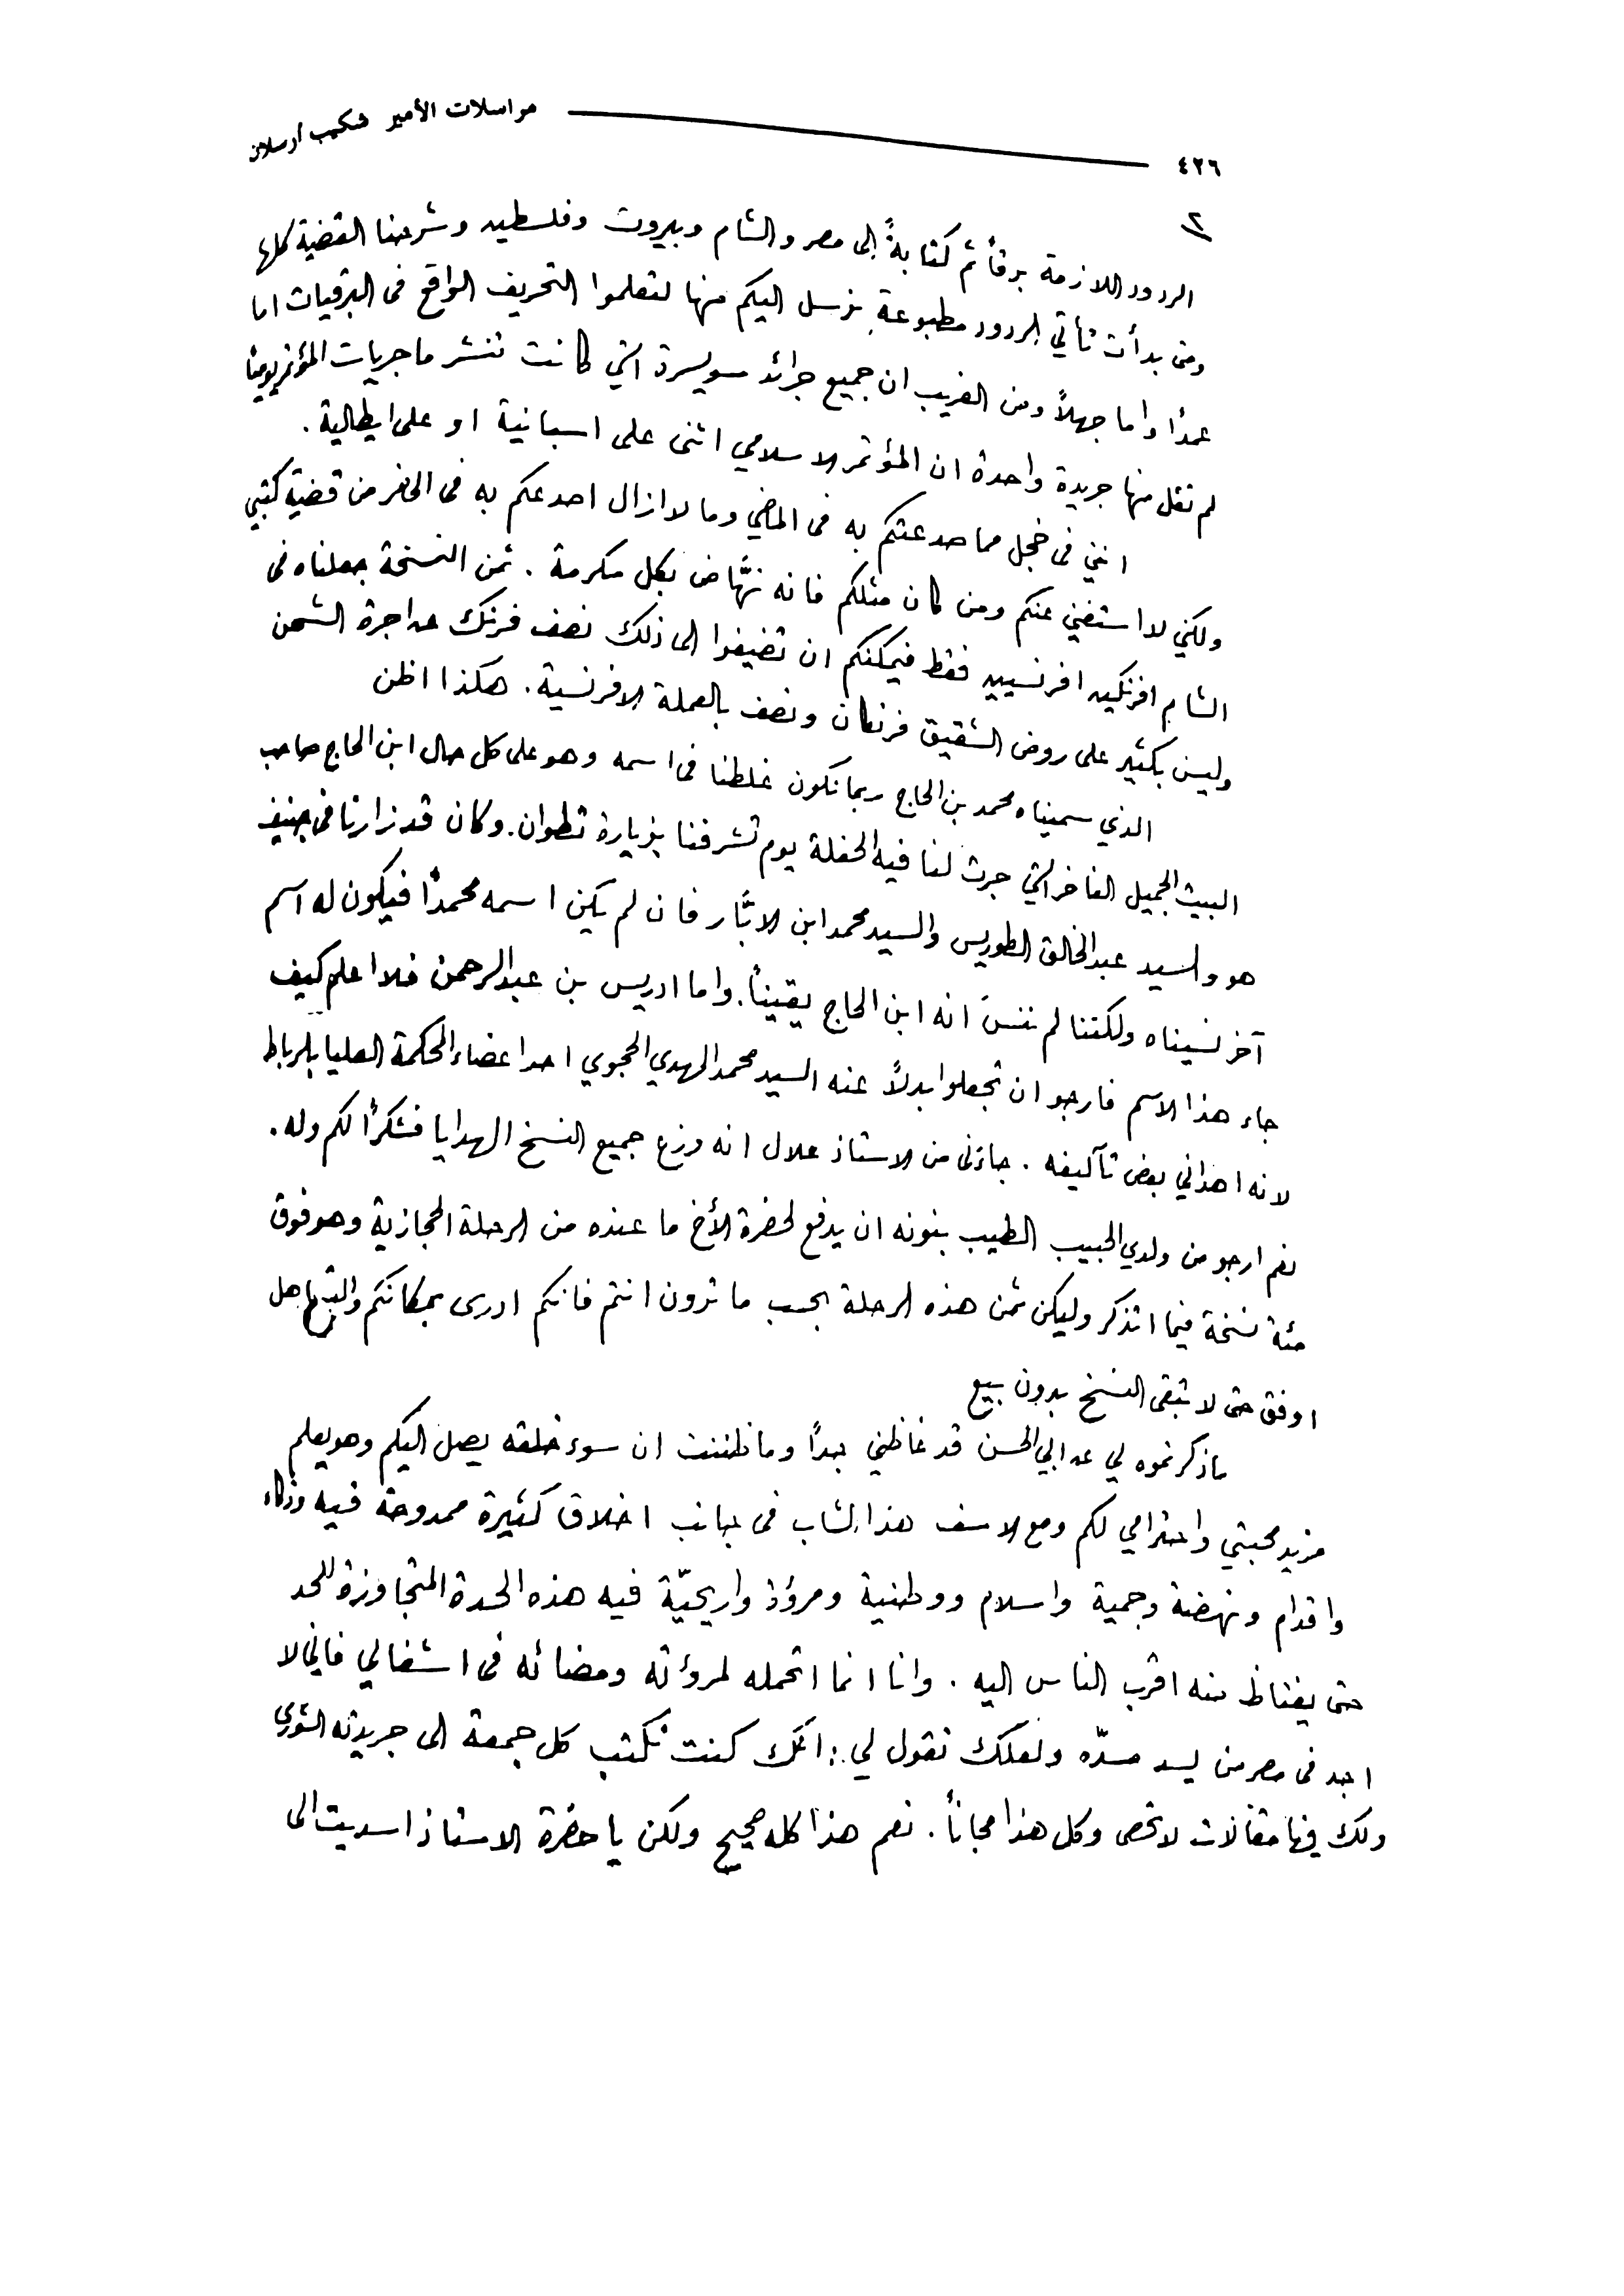 ٤٢٦ مراسلات الأمير شكيب أرسلان
٢
الردود اللازمة برقاً ثم كتابةً إلى مصر والشام وبيروت وفلسطين وشرحنا القضية كلها
ومتى بدأت تأتي الردود مطبوعة نرسل اليكم منها لتعلموا التحريف الواقع في البرقيات اما
عمداً واما جهلاً ومن الغريب ان جميع جرائد سويسرة التي كانت تنشر ماجريات المؤتمر يومياً
لم تقل منها جريدة واحدة ان المؤتمر الاسلامي اثنى على اسبانية او على ايطالية .
انني في خجل مما صدعتكم به في الماضي وما لا ازال اصدعكم به في الحاضر من قضية كتبي
ولكني لا استغني عنكم ومن كان مثلكم فانه نهّاض بكل مكرمة . ثمن النسخة جعلناه في
الشام افرنكين افرنسيين فقط فيمكنكم ان تضيفوا الى ذلك نصف فرنك عن اجرة الشحن
وليس بكثير على روض الشقيق فرنكان ونصف بالعملة الافرنسية . هكذا اظن
الذي سميناه محمد بن الحاج ربما نكون غلطنا في اسمه وهو على كل حال ابن الحاج صاحب
البيت الجميل الفاخر التي جرت لنا فيه الحفلة يوم تشرفنا بزيارة تطوان . وكان قد زارنا في جنيف
هو والسيد عبد الخالق الطوريس والسيد محمد ابن الابّار فان لم يكن اسمه محمداً فيكون له اسم
آخر نسيناه ولكننا لم ننسَ انه ابن الحاج يقيناً . واما ادريس بن عبد الرحمن فلا اعلم كيف
جاء هذا الاسم فارجو ان تجعلوا بدلاً عنه السيد محمد المهدي الحجوي احد اعضاء المحكمة العليا بالرباط
لانه اهداني بعض تآليفه . جاءني من الاستاذ علال انه وزع جميع النسخ الهدايا فشكراً لكم وله .
نعم ارجو من ولدي الحبيب الطيب بنونه ان يدفع لحضرة الأخ ما عنده من الرحلة الحجازية وهو فوق
مئة نسخة فيما اتذكر وليكن ثمن هذه الرحلة بحسب ما ترون انتم فانكم ادرى بمكانتكم والتساهل
اوفق حتى لا تبقى النسخ بدون بيع
ما ذكرتموه لي عن ابي الحسن قد غاظني جداً وما ظننت ان سوء خلقه يصل اليكم وهو يعلم
مزيد محبتي واحترامي لكم ومع الاسف هذا الشاب في جانب اخلاق كثيرة ممدوحة فيه وذكاء
واقدام ونهضة وحمية واسلام ووطنية ومروءة واريحيّة فيه هذه الحدة المتجاوزة للحد
حتى يغتاظ منه اقرب الناس اليه . وانا انما اتحمله لمروءته ومضائه في اشغالي فاني لا
اجد في مصر من يسد مسدّه ولعلك تقول لي : انك كنت تكتب كل جمعة الى جريدته الشورى
ولك فيها مقالات لا تحصى وكل هذا مجاناً . نعم هذا كله صحيح ولكن يا حضرة الاستاذ اسديت الى